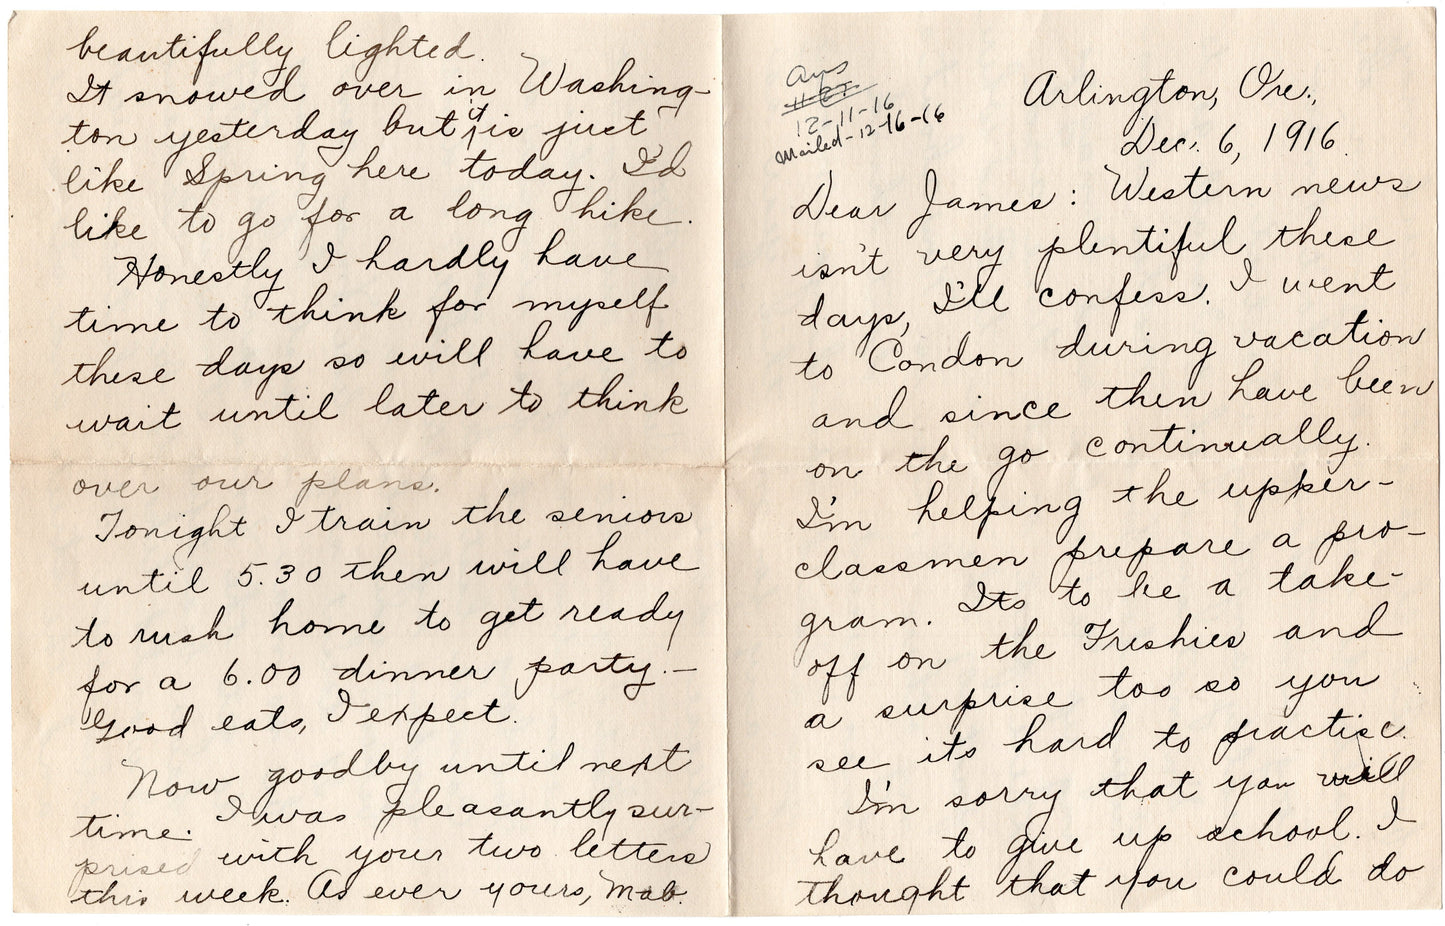 beautifully lighted.
It snowed over in Washing-
ton yesterday but it is just
like Spring here today. I'd
like to go for a long hike.
Honestly I hardly have
time to think for myself
these days so will have to
wait until later to think
over our plans.
Tonight I train the seniors
until 5.30 then will have
to rush home to get ready
for a 6.00 dinner party.—
Good eats, I expect.
Now goodby until next
time. I was pleasantly sur-
prised with your two letters
this week. As ever yours, Mab.
Ans
12-11-16
Mailed-12-16-16
Arlington, Ore.,
Dec. 6, 1916.
Dear James: Western news
isn't very plentiful these
days, I'll confess. I went
to Condon during vacation
and since then have been
on the go continually.
I'm helping the upper-
classmen prepare a pro-
gram. Its to be a take-
off on the Freshies and
a surprise too so you
see its hard to practise.
I'm sorry that you will
have to give up school. I
thought that you could do